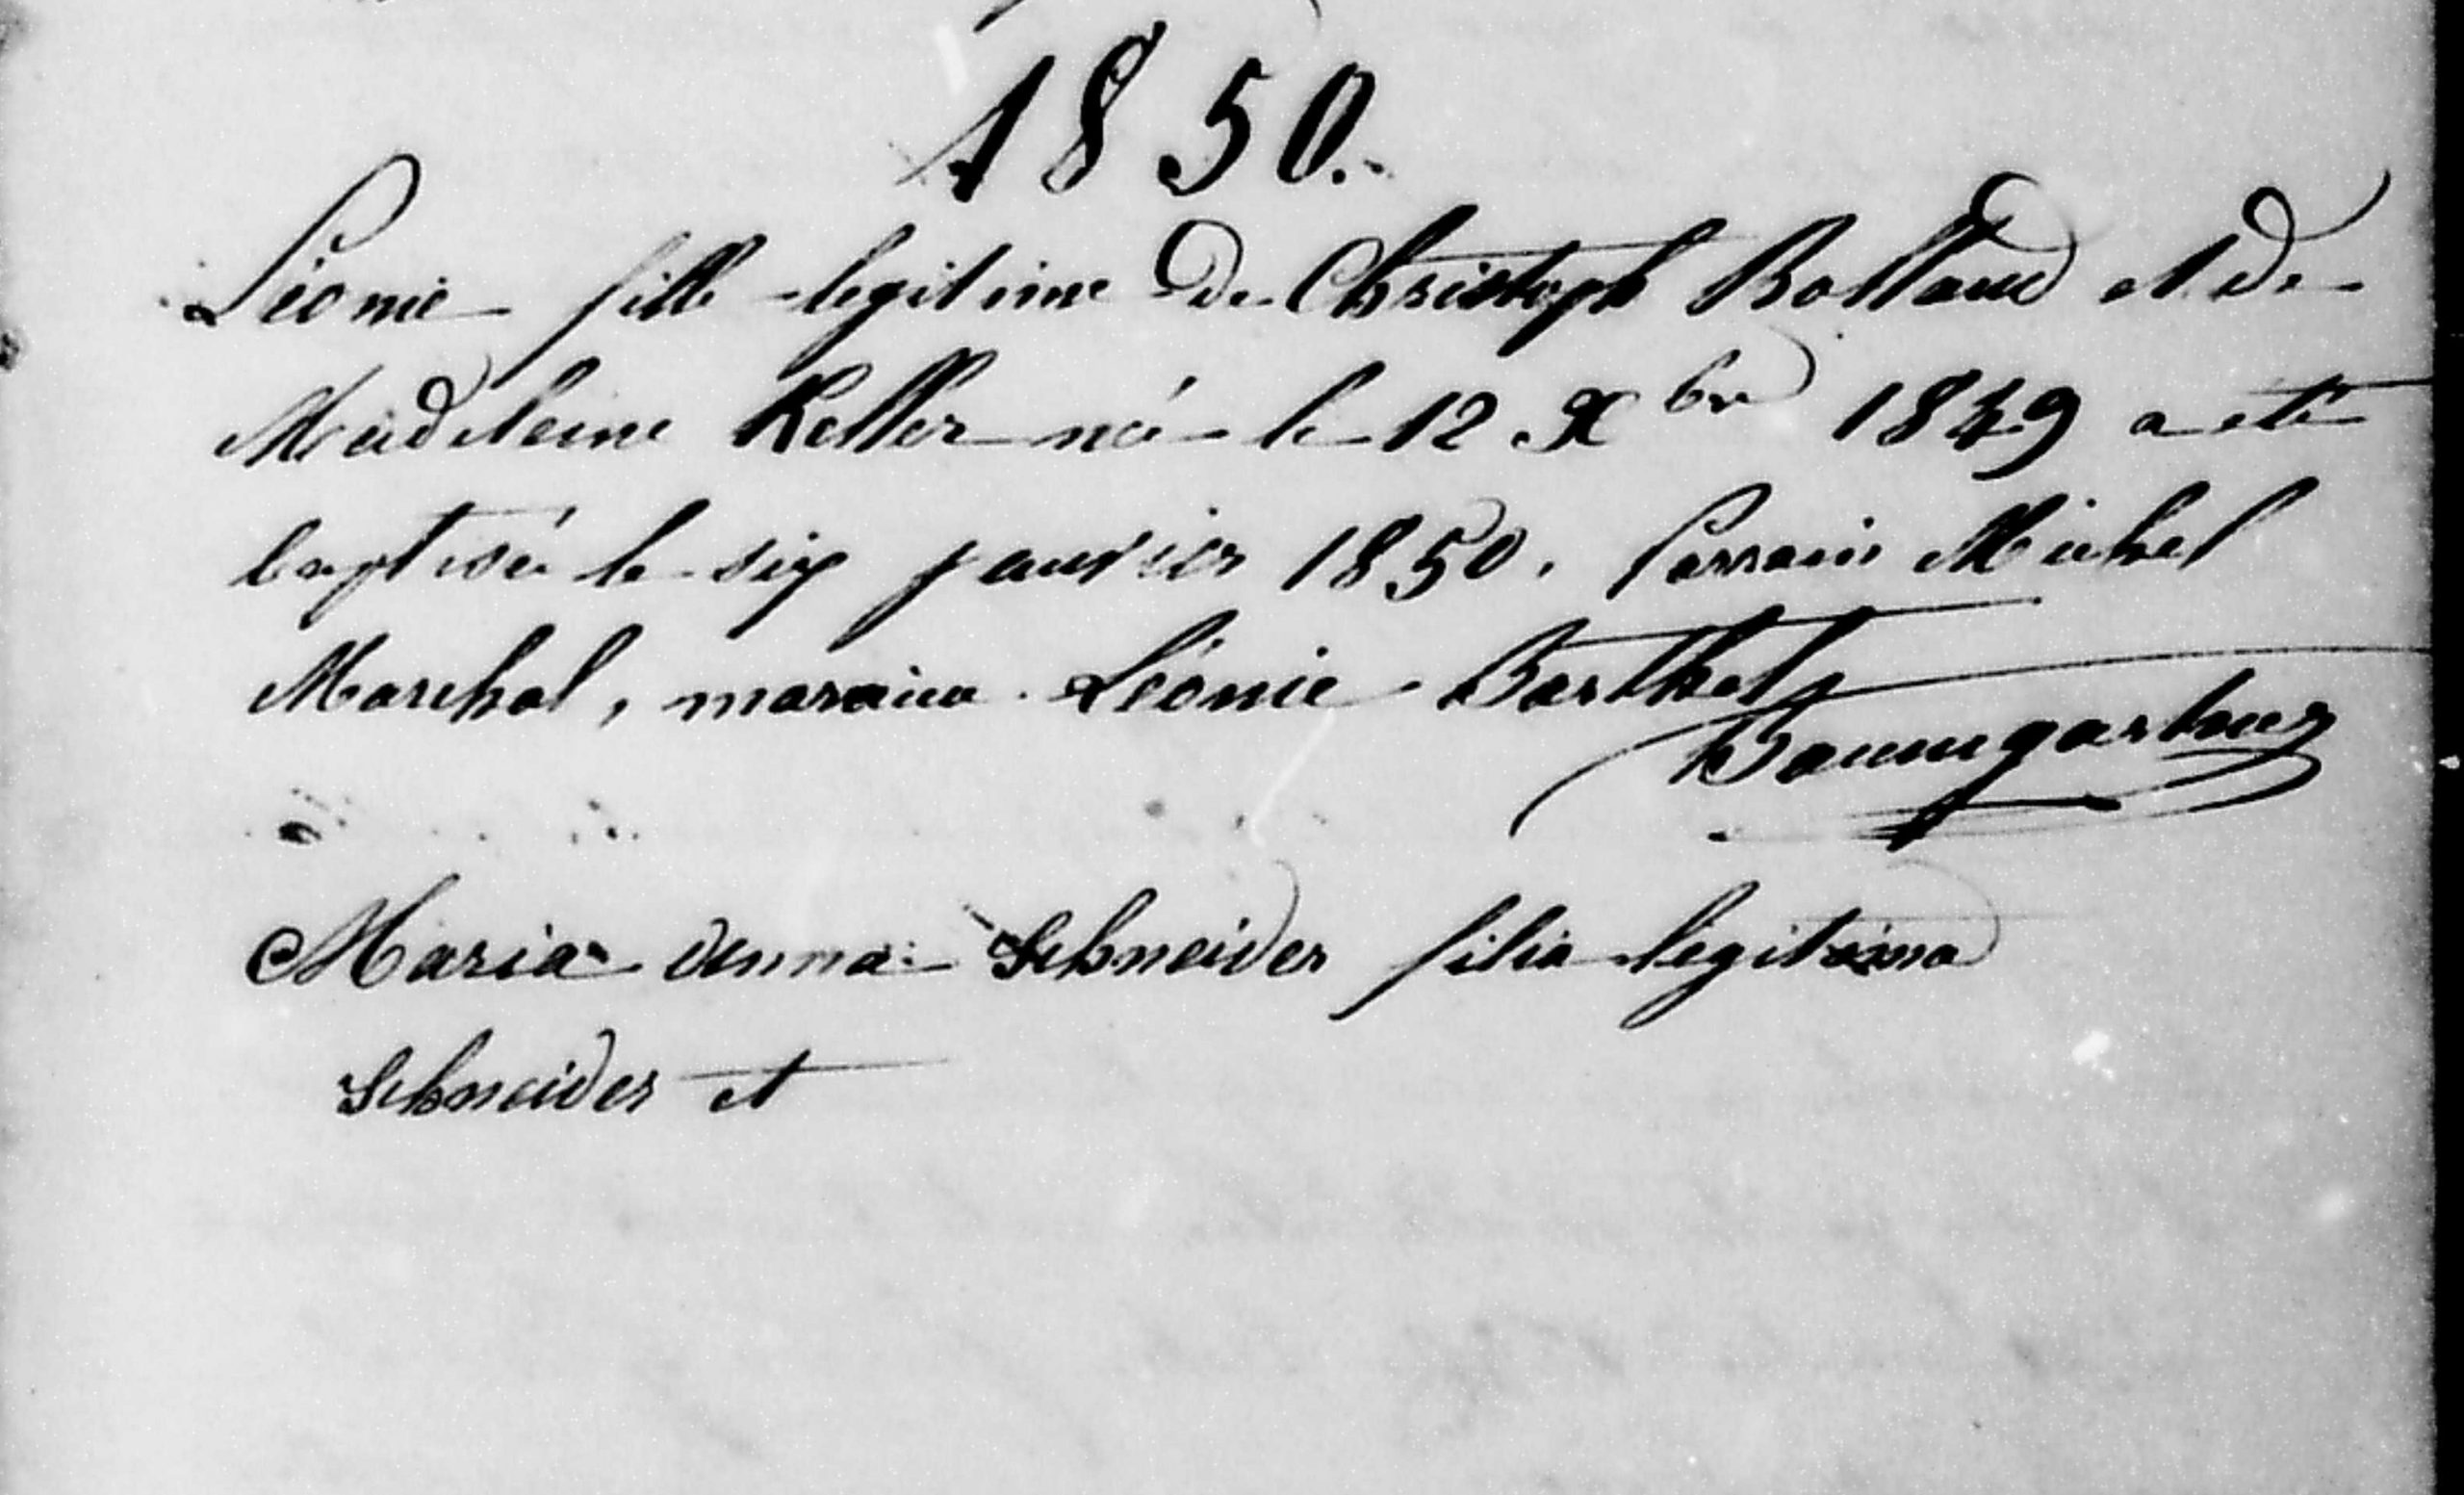 1850.
Léonie fille legitime de Christoph Rolland et de
Madeleine Keller né le 12 Xbre 1849 a eté
baptisé le six janvier 1850. Parrain Michel
Marchal, maraine Léonie Barthel
Baumgartner
Maria Anna Schneider filia legitima
Schneider et